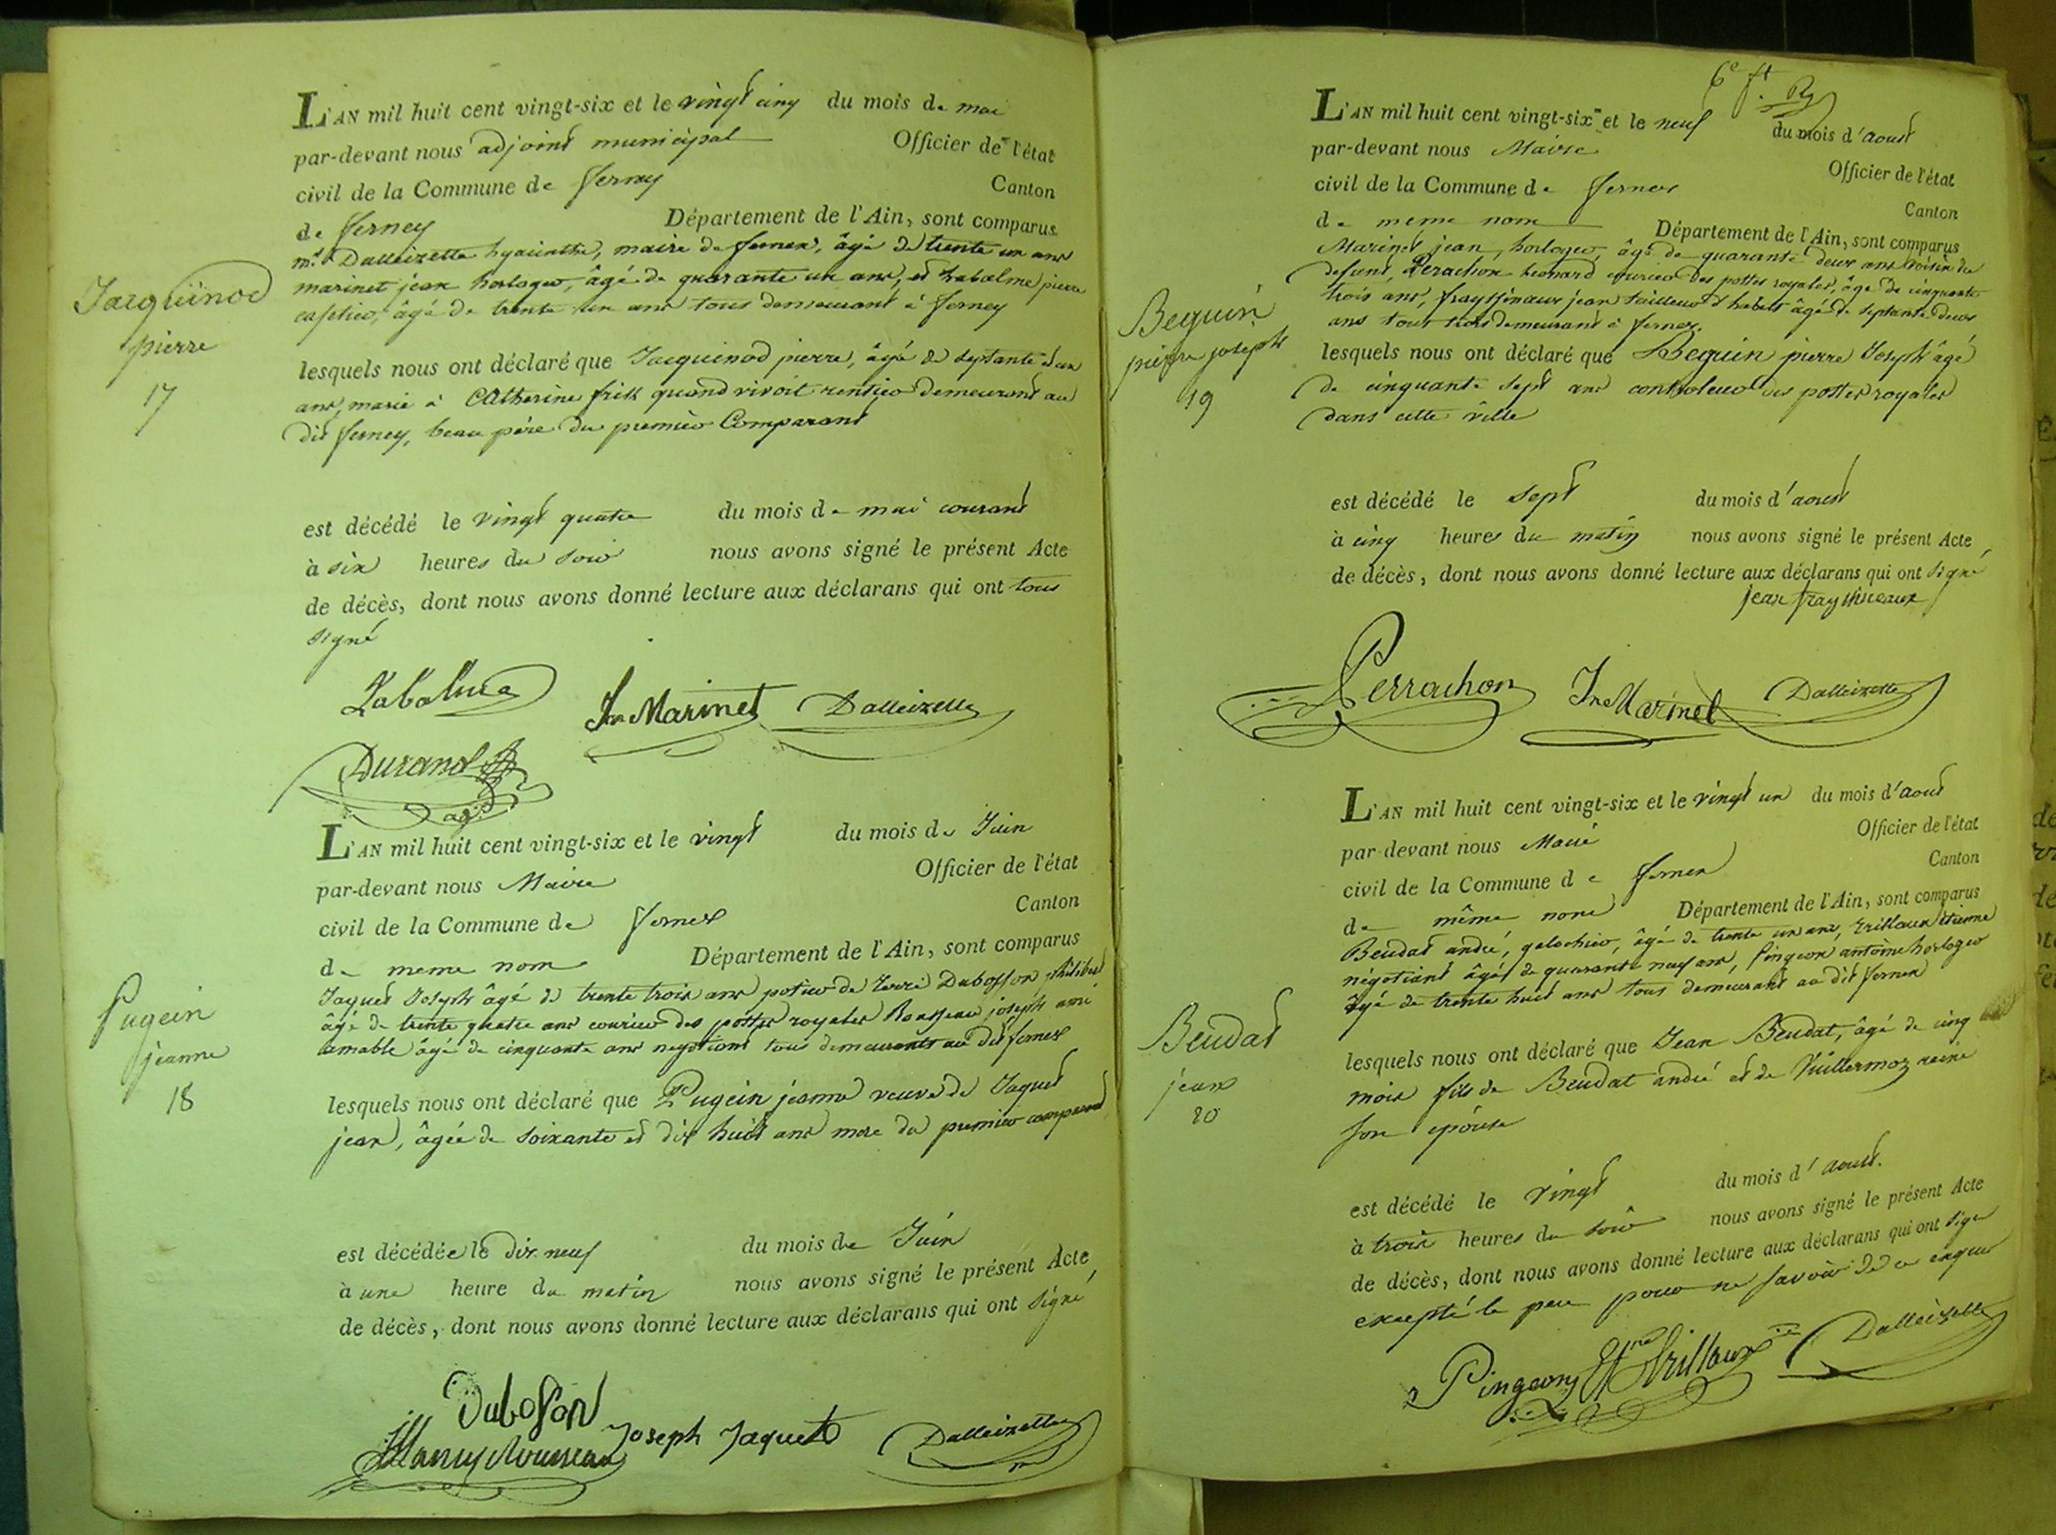 L'AN mil huit cent vingt-six et le vingt cinq du mois de mai
par-devant nous adjoint municipal Officier de l'état
civil de la Commune de ferney Canton
de ferney Département de l'Ain, sont comparus
mr. Dalleizette hyacinthe, maire de fernex, âgé de trente un ans
marinet jean horloger, âgé de quarante un ans, et Labalme pierre
cafetier, âgé de trente un ans tous demeurant à ferney
Jacquinod
pierre
17
lesquels nous ont déclaré que Jacquinod pierre, âgé de septante deux
ans, marié à Catherine frik quand vivoit rentier demeurant au
dit ferney, beau père du premier Comparant
est décédé le vingt quatre du mois de mai courant
à six heures du soir nous avons signé le présent Acte
de décès, dont nous avons donné lecture aux déclarans qui ont tous
signé
Labalme Jn Marinet Dalleizette
Durand
adj.
L'AN mil huit cent vingt-six et le vingt du mois de Juin
par-devant nous Maire Officier de l'état
civil de la Commune de fernex Canton
de meme nom Département de l'Ain, sont comparus
Jaquet Joseph âgé de trente trois ans potier de terre Dubosson philibert
âgé de trente quatre ans courier des postes royales Rousseau joseph amé
amable âgé de cinquante ans negotiant tous demeurants au dit fernex
Pugein
jeanne
18
lesquels nous ont déclaré que Pugein jeanne veuve de Jaquet
jean, âgée de soixante et dix huit ans mere du premier comparant
est décédée le dix neuf du mois de Juin
à une heure du matin nous avons signé le présent Acte
de décès, dont nous avons donné lecture aux déclarans qui ont signé
Dubosson
Rousseau Joseph Jaquet Dalleizette
6e ft.
L'AN mil huit cent vingt-six et le neuf du mois d'aoust
par-devant nous Maire Officier de l'état
civil de la Commune de fernex Canton
de meme nom Département de l'Ain, sont comparus
Marinet jean, horloger, âgé de quarante deux ans voisin du
defunt, Perachon leonard courier des postes royales, âgé de cinquante
trois ans, frayssineaux jean tailleur d'habits âgé de septante deux
ans tous trois demeurans à fernex.
Beguin
pierre joseph
19
lesquels nous ont déclaré que Beguin pierre Joseph âgé
de cinquante sept ans controleur des postes royales
dans cette ville
est décédé le sept du mois d'aoust
à cinq heures du matin nous avons signé le présent Acte
de décès, dont nous avons donné lecture aux déclarans qui ont signé
jean fraysineaux
Perrachon Jn Marinet Dalleizette
L'AN mil huit cent vingt-six et le vingt un du mois d'aout
par-devant nous Maire Officier de l'état
civil de la Commune de fernex Canton
de même nom Département de l'Ain, sont comparus
Beudat andré, galochier, âgé de trente un ans, trillaux étienne
négotiant âgé de quarante neuf ans, pingeon antoine horloger
âgé de trente huit ans tous demeurants au dit fernex
Beudat
jean
20
lesquels nous ont déclaré que Jean Beudat, âgé de cinq
mois fils de Beudat andré et de Vuillermoz reine
son épouse
est décédé le vingt du mois d'aoust.
à trois heures du soir nous avons signé le présent Acte
de décès, dont nous avons donné lecture aux déclarans qui ont signé
excepté le pere pour ne savoir de ce enquis
Pingeon Etne trillaux Dalleizette